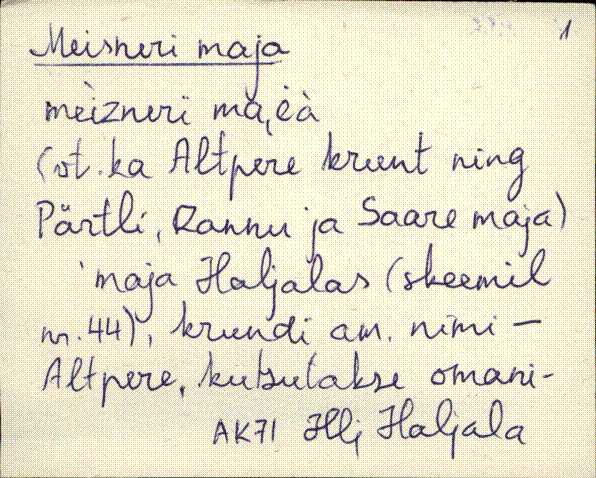 1
Meisneri maja
mèizneri ma,èà
(vt. ka Altpere krunt ning
Pärtli, Rannu ja Saare maja)
'maja Haljalas (skeemil
nr. 44), krundi am. nimi –
Altpere, kutsutakse omani-
AK71 Hlj Haljala